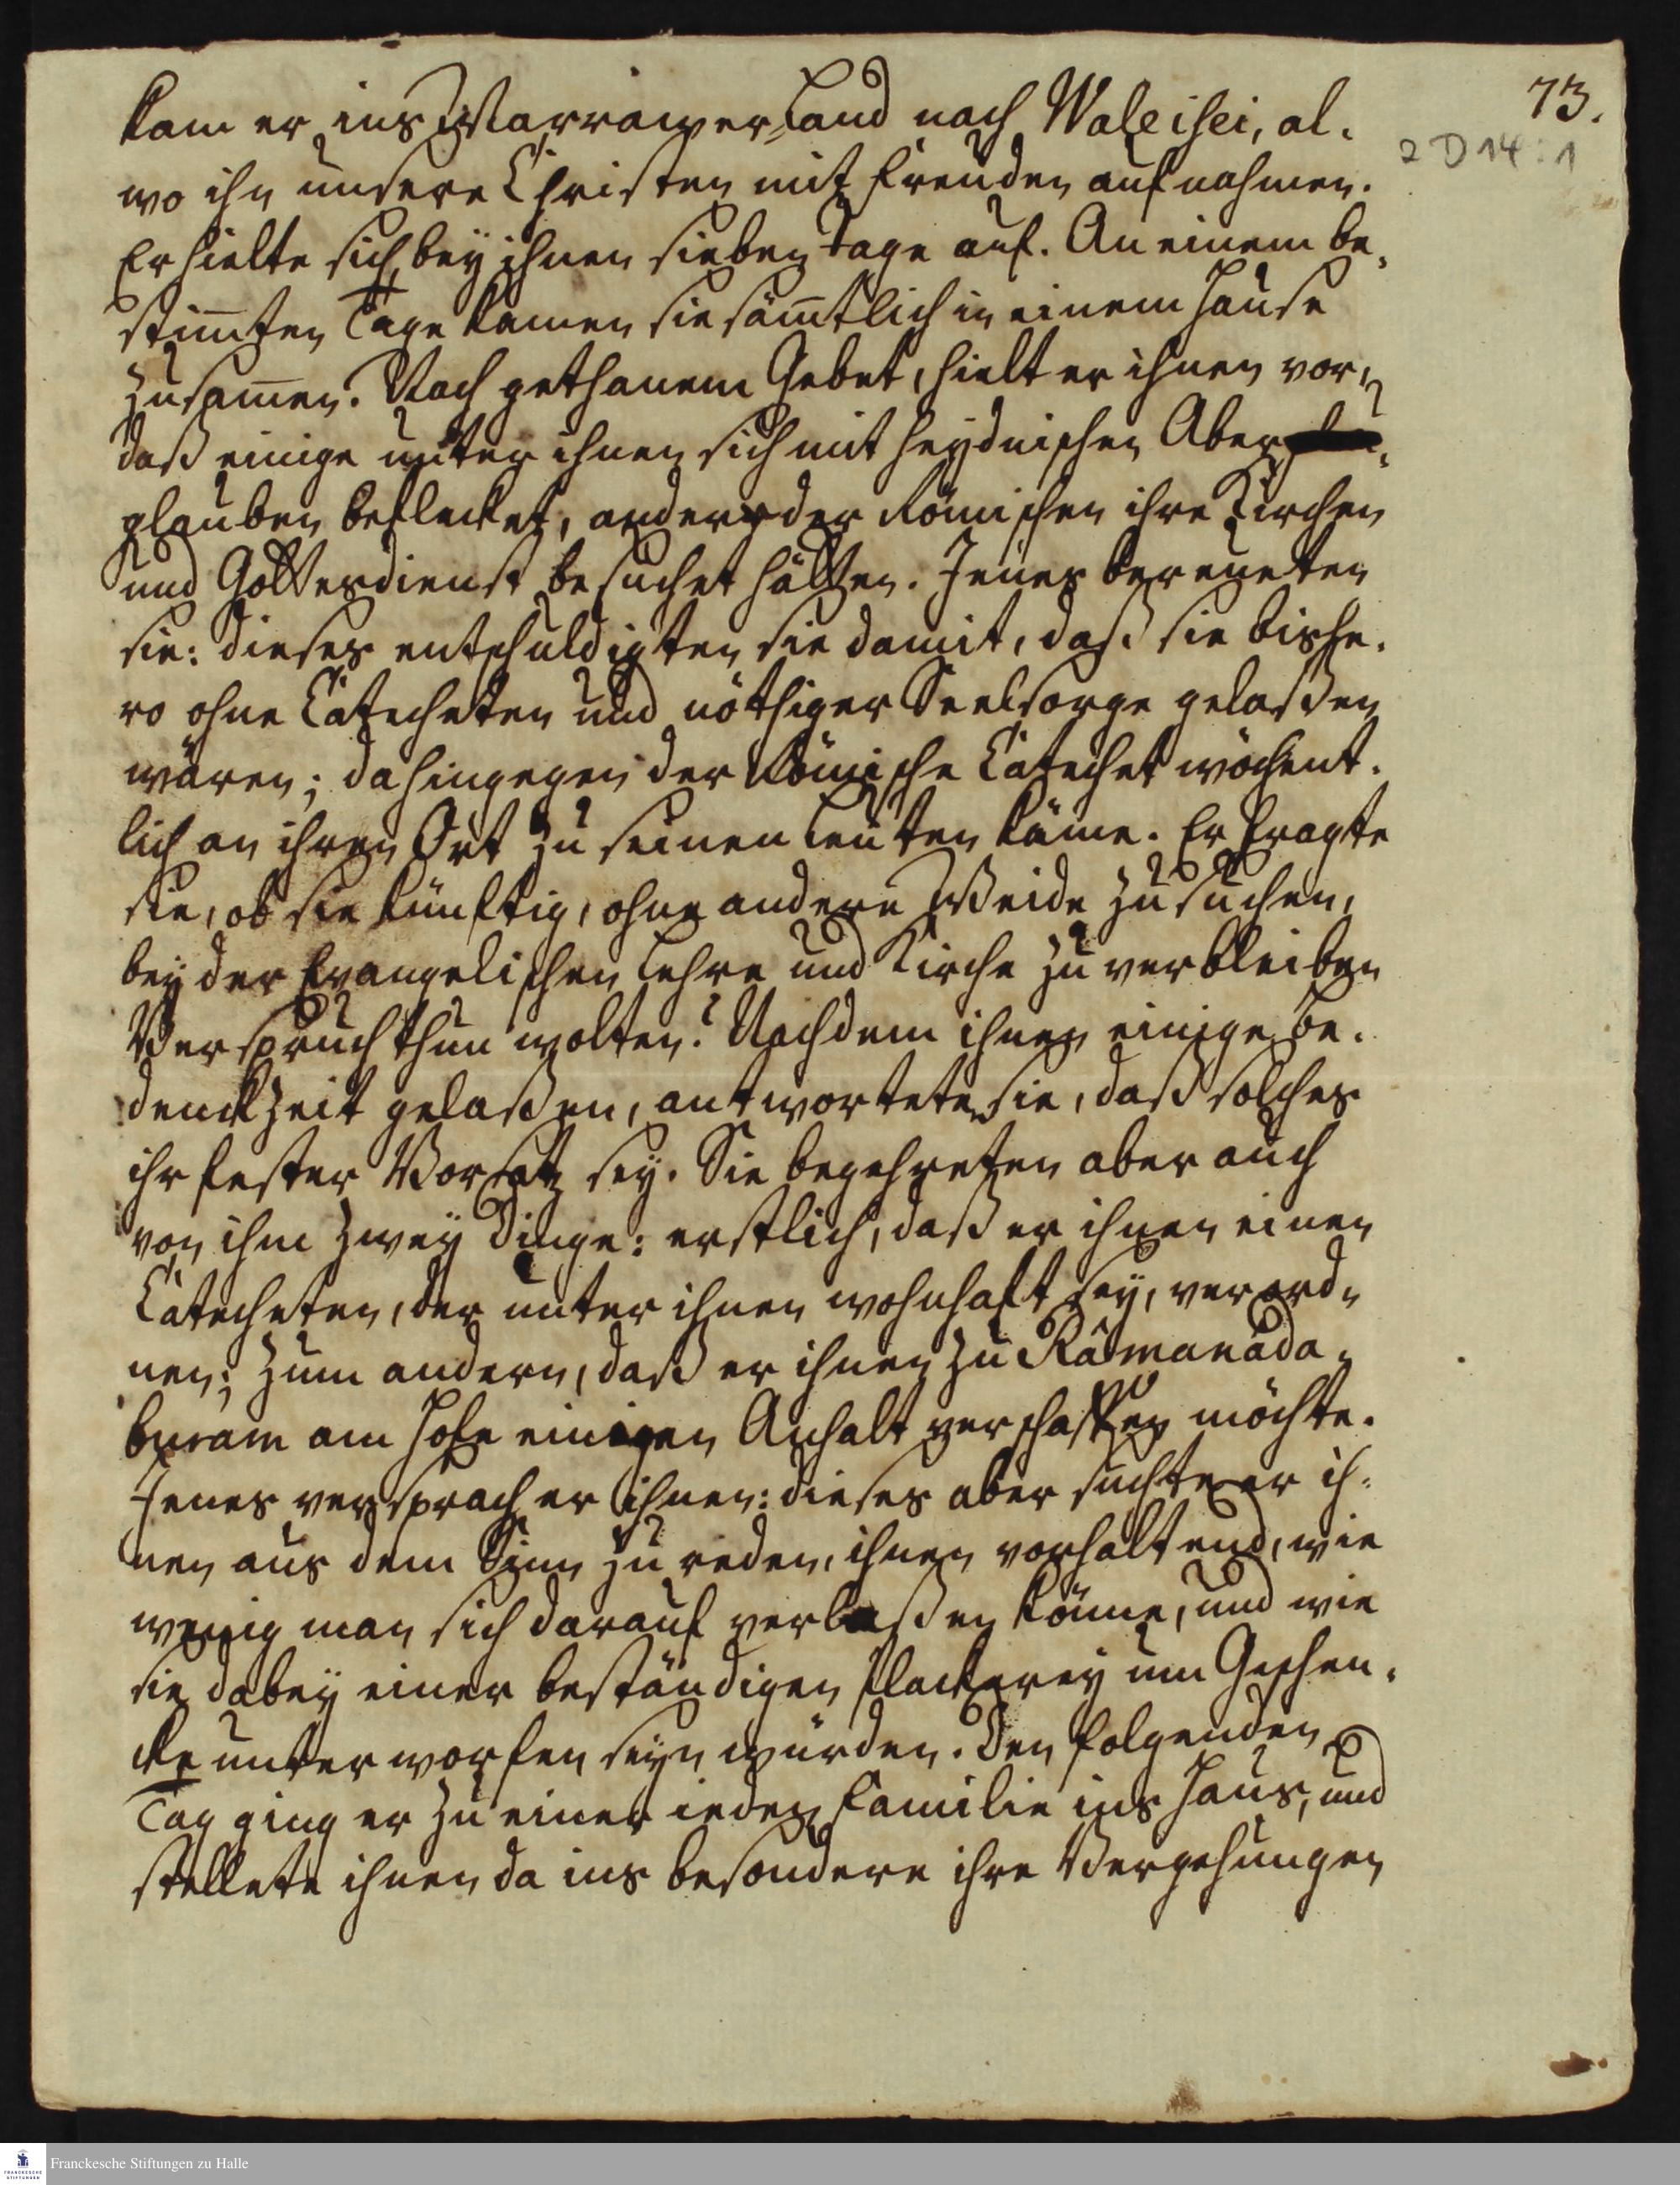 73.
2 D 14 : 1
kam er ins Marrawer-Land nach Waleisei, al-
wo ihn unsere Christen mit Freuden aufnahmen.
Er hielte sich bey ihnen sieben Tage auf. An einem be-
stim̄ten Tage kamen sie säm̄tlich in einem Hause
zusam̄en. Nach gethanem Gebet, hielt er ihnen vor,
daß einige unter ihnen sich mit heydnischen Aber-
glauben beflecket, andere der Römischen ihre Kirchen
und Gottesdienst besuchet hätten. Jenes bereueten
sie: dieses entschuldigten sie damit, daß sie bishe-
ro ohne Catecheten und nöthiger Seelsorge gelaßen
wären; dahingegen der Römische Catechet wöchent-
lich an ihren Ort zu seinen Leuten käme. Er fragte
sie, ob sie künftig, ohne andere Weide zu suchen,
bey der Evangelischen Lehre und Kirche zu verbleiben
Verspruch thun wolten? Nachdem ihnen einige Be-
denckzeit gelaßen, antworteten sie, daß solches
ihr fester Vorsatz sey. Sie begehreten aber auch
von ihm zwey Dinge: erstlich, daß er ihnen einen
Catecheten, der unter ihnen wohnhaft sey, verord-
nen; zum andern, daß er ihnen zu Râmanâda-
buram am Hofe einigen Anhalt verschaffen möchte.
Jenes versprach er ihnen: dieses aber suchte er ih-
nen aus dem Sinn zu reden, ihnen vorhaltend, wie
wenig man sich darauf verlaßen könne, und wie
sie dabey einer beständigen Plackerey um Geschen-
cke unterworfen seyn würden. Den folgenden
Tag ging er zu einer ieden Familie ins Haus, und
stellete ihnen da ins besondere ihre Vergehungen
Franckesche Stiftungen zu Halle